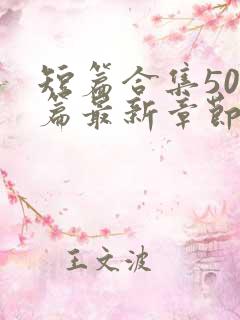 短篇合集50
篇最新章节
王文波